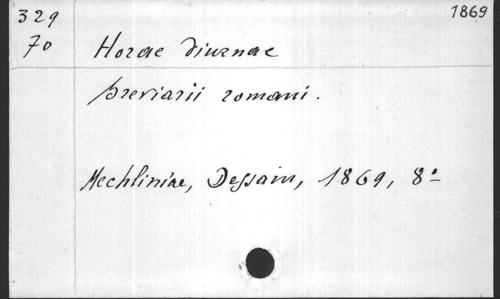 329 1869
70 Horae diurnae
breviarii romani.
Mechliniae, Dessain, 1869, 8º